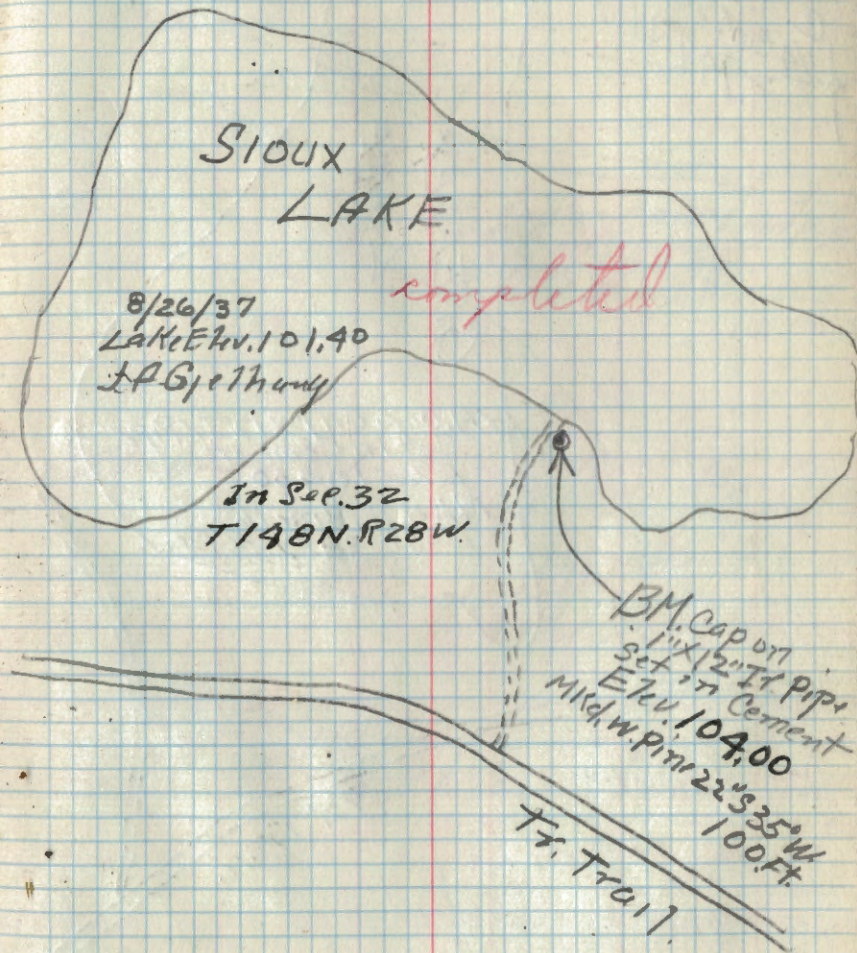 SIOUX
LAKE
completed
8/26/37
Lake Elev. 101.40
In Sec. 32
T148N. R28W.
BM. Cap on
1"x12" Ir. Pipe
Set in Cement
Elev. 104.00
Mkd. W. Pine 22" S35°W.
100 Ft.
Tr. Trail